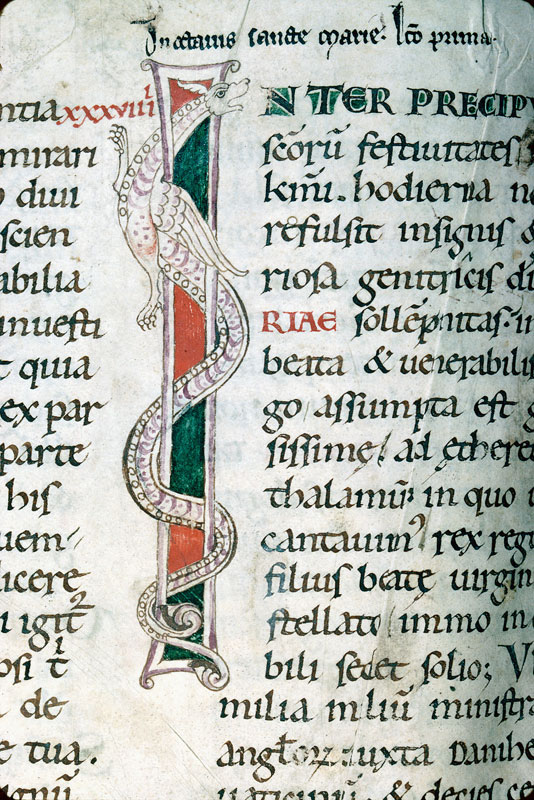 In octauis sancte marie. lco prima.
ntia
mirari
diui
scien
abilia
nuesti
t quia
ex par
parte
his
uem
licere
i igit᷑
osi
de
e tua.
gnū
xxxviiii
INTER PRECIPV
scōrū festiuitates
kmī. hodierna n
refulsit insignis &
riosa genitricis di
RIAE sollēpnitas. in
beata & uenerabilis
go assumpta est g
sissime ad ethere
thalamū in quo
cantauim᷒ rex reg
filius beate uirgin
stellato immo in
bili sedet solio; V
milia miliū ministra
anglorꝝ iuxta Danihe
uaticiniū & decies ce